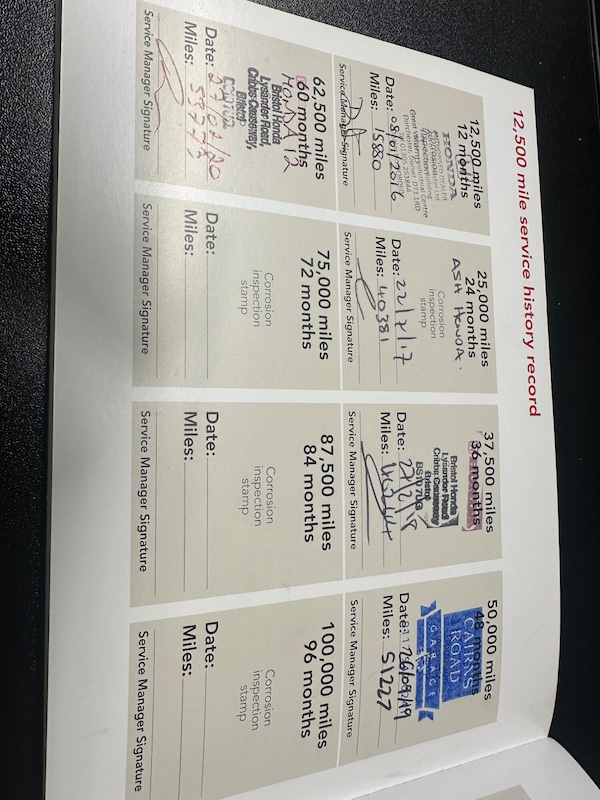 12,500 mile service history record
12,500 miles
12 months
HONDA
Date: 08/01/2016
Miles: 15880
Service Manager Signature
25,000 miles
24 months
ASH HONDA.
Corrosion
inspection
stamp
Date: 22/2/17
Miles: 40381
Service Manager Signature
37,500 miles
36 months
Bristol Honda
Lysander Road
Cribbs Causeway
Bristol
Date:
Miles:
Service Manager Signature
50,000 miles
48 months
CAIRNS
ROAD
GARAGE
Date:
Miles: 51227
Service Manager Signature
62,500 miles
60 months
HONDA
Bristol Honda
Lysander Road,
Cribbs Causeway,
Bristol
Date:
Miles:
Service Manager Signature
75,000 miles
72 months
Corrosion
inspection
stamp
Date:
Miles:
Service Manager Signature
87,500 miles
84 months
Corrosion
inspection
stamp
Date:
Miles:
Service Manager Signature
100,000 miles
96 months
Corrosion
inspection
stamp
Date:
Miles:
Service Manager Signature